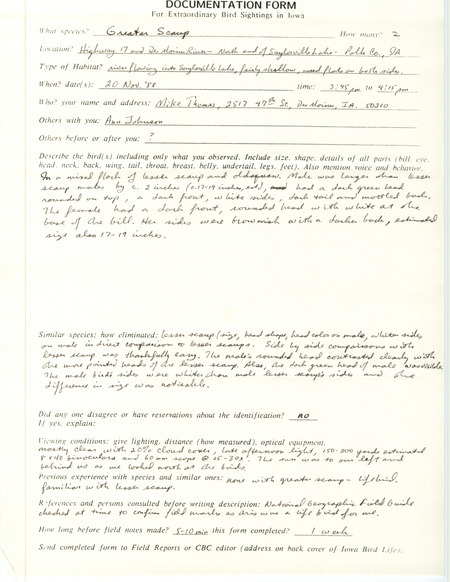 DOCUMENTATION FORM
For Extraordinary Bird Sightings in Iowa
What species? Greater Scaup How many? 2
Location? Highway 17 and Des Moines River - North end of Saylorville Lake - Polk Co., IA
Type of Habitat? river flowing into Saylorville Lake, fairly shallow, mud flats on both sides.
When? date(s): 20 Nov. '88 time: 3:45 pm to 4:15 pm
Who? your name and address: Mike Thomas, 2517 47th St, Des Moines, IA. 50310
Others with you: Ann Johnson
Others before or after you: ?
Describe the bird(s) including only what you observed. Include size, shape, details of all parts (bill, eye,
head, neck, back, wing, tail, throat, breast, belly, undertail, legs, feet). Also mention voice and behavior.
In a mixed flock of lesser scaup and oldsquaw. Male was larger than lesser
scaup males by c. 2 inches (c. 17-19 inches, est), had a dark green head
rounded on top, a dark front, white sides, dark tail and mottled back.
The female had a dark front, rounded head with white at the
base of the bill. Her sides were brownish with a darker back, estimated
size also 17-19 inches.
Similar species; how eliminated: lesser scaup (size, head shape, head color on male, whiter sides
on male in direct comparison to lesser scaups. Side by side comparisons with
lesser scaup was thankfully easy. The male's rounded head contrasted clearly with
the more pointed heads of the lesser scaup. Also, the dark green head of male was visible.
The male birds sides were whiter than male lesser scaup's sides and the
difference in size was noticeable.
Did any one disagree or have reservations about the identification? no
If yes, explain:
Viewing conditions: give lighting, distance (how measured), optical equipment.
mostly clear with 20% cloud cover, late afternoon light, 150-200 yards estimated
8x40 binoculars and 60mm scope @ 25-30x. The sun was to our left and
behind us as we looked north at the birds.
Previous experience with species and similar ones: none with greater scaup - lifebird.
familiar with lesser scaup.
References and persons consulted before writing description: National Geographic Field Guide
checked at time to confirm field marks as this was a life bird for me.
How long before field notes made? 5-10 min this form completed? 1 week
Send completed form to Field Reports or CBC editor (address on back cover of Iowa Bird Life).